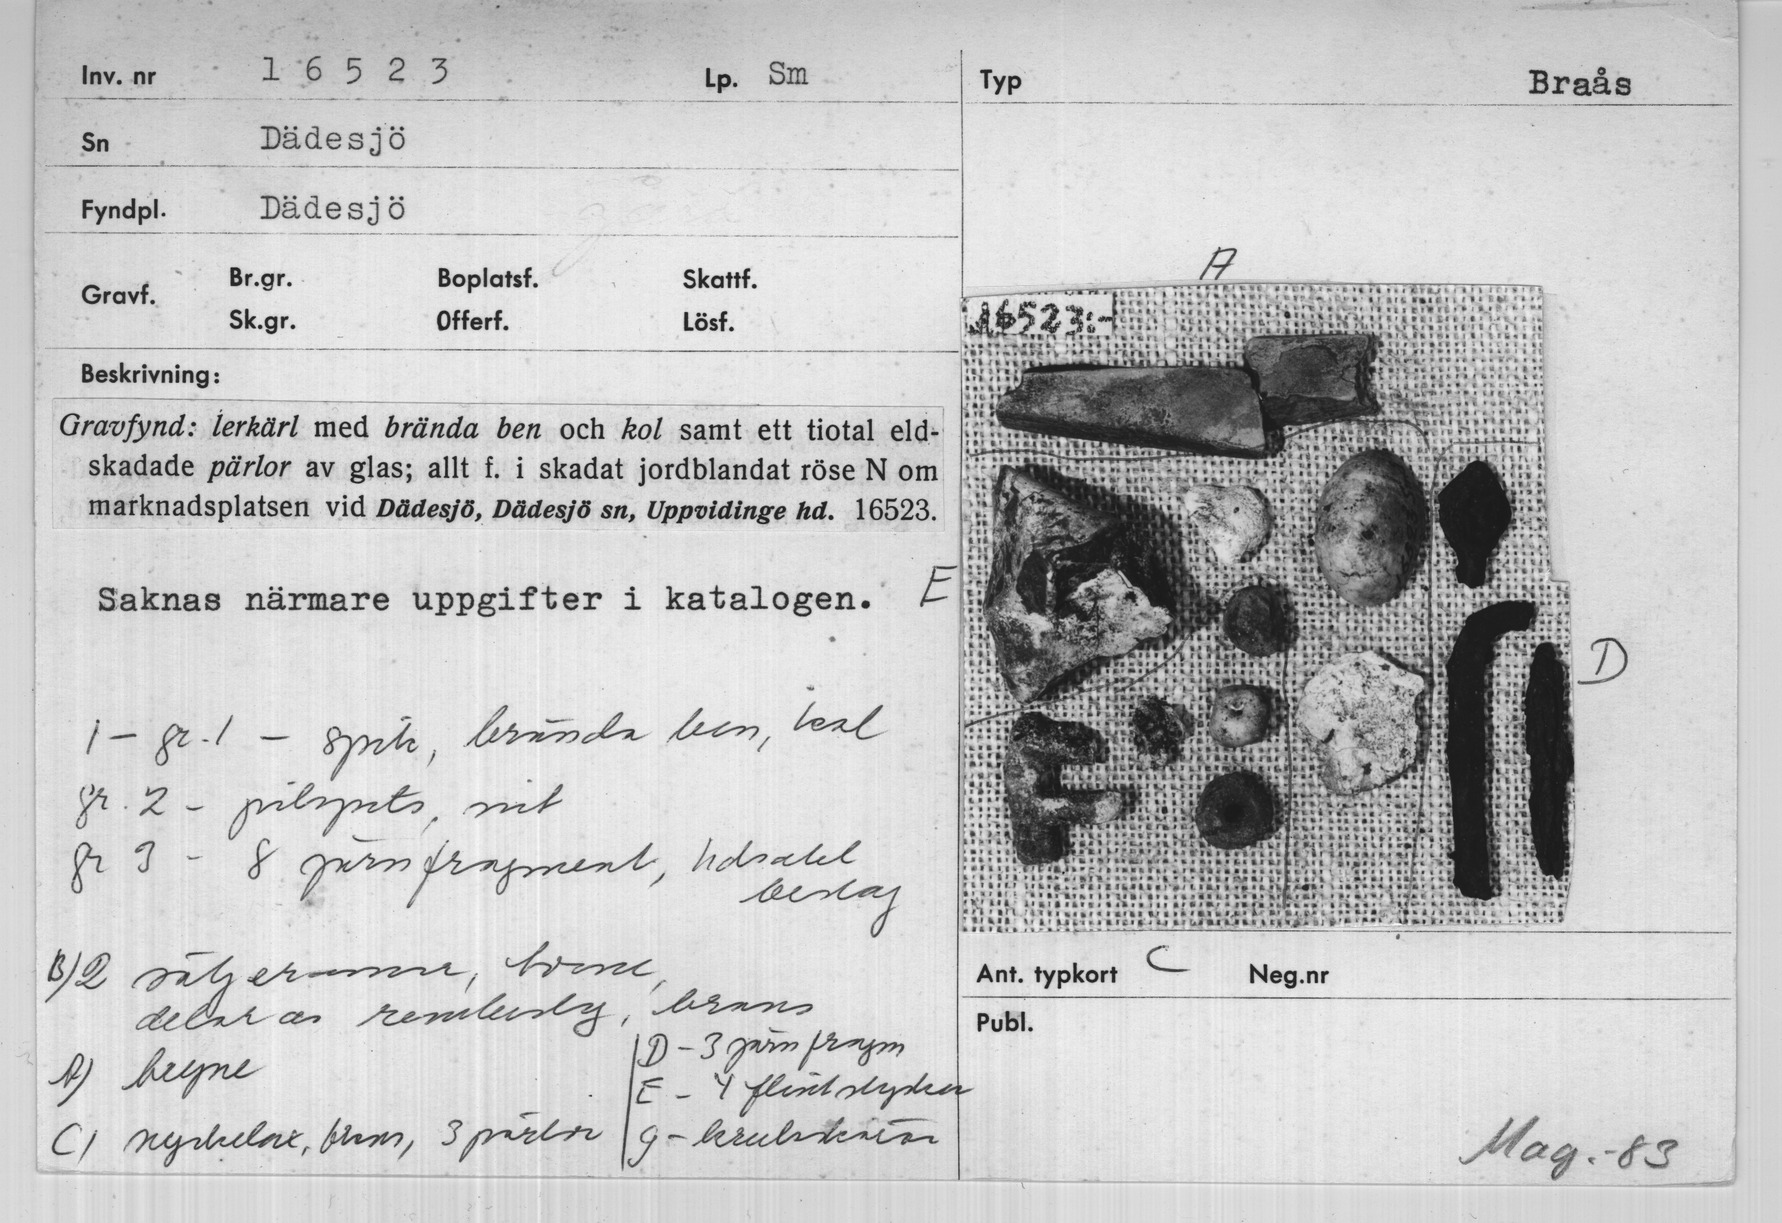 Inv. nr 16523 Lp. Sm
Sn Dädesjö
Fyndpl. Dädesjö
Gravf. Br.gr. Boplatsf. Skattf.
Sk.gr. Offerf. Lösf.
Beskrivning:
Gravfynd: lerkärl med brända ben och kol samt ett tiotal eld-
skadade pärlor av glas; allt f. i skadat jordblandat röse N om
marknadsplatsen vid Dädesjö, Dädesjö sn, Uppvidinge hd. 16523.
Saknas närmare uppgifter i katalogen.
1 - gr. 1 - spik, brända ben, kol
gr. 2 - pilspets, nit
gr 3 - 8 järnfragment,
beslag
B) 2 brons,
delar av rembeslag, brons
A) bryne
C) brons, 3 pärlor
D - 3 järnfragm
E - 4 flintstycken
g -
Typ Braås
A
16523:-
E
D
C
Ant. typkort Neg.nr
Publ.
Mag.-83